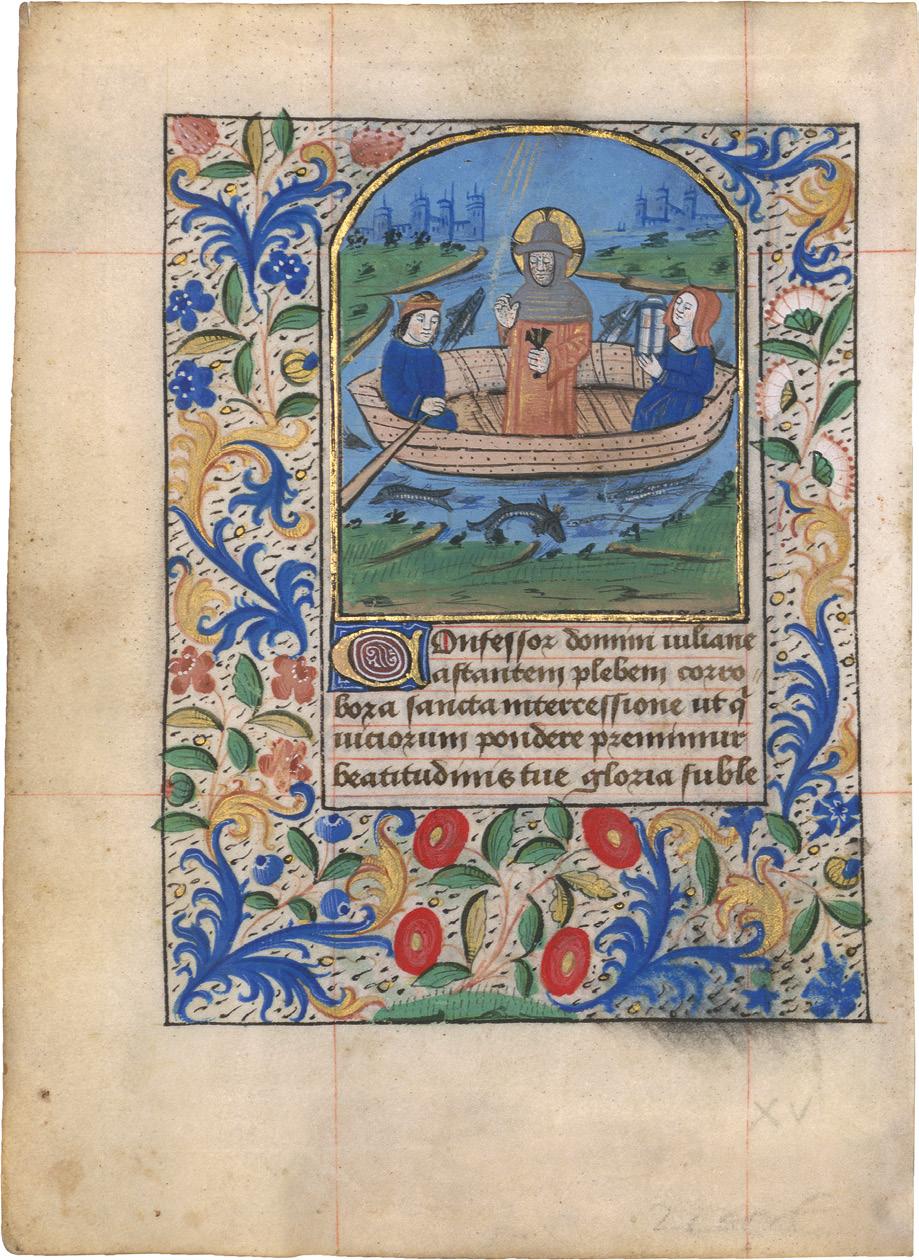 Confessor domini iuliane
astantem plebem corro
bora sancta intercessione ut q̄
uiciorum pondere premimur
beatitudinis tue gloria suble
XV